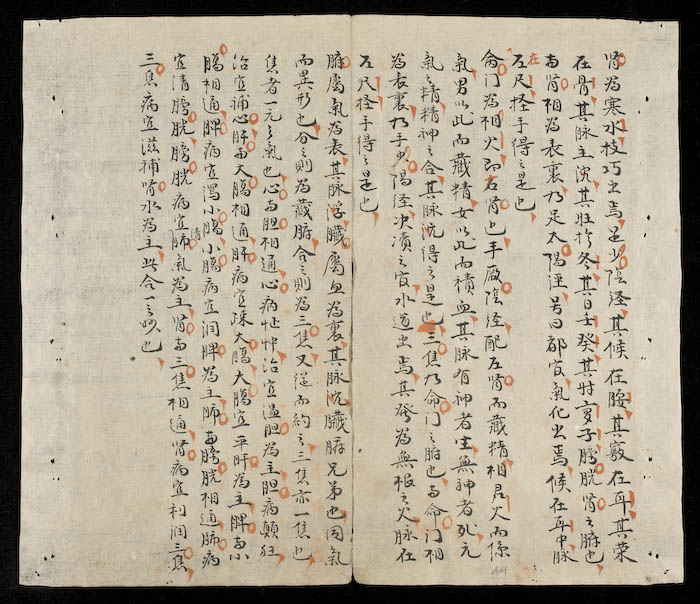 腎為寒水技巧出焉足少陰逕其候在腰其竅在耳其荣
在骨其脉主沉其旺於冬其日壬癸其时亥子膀胱腎之腑也
与腎相為表裏乃足太陽逕号曰都官氣化出焉候在耳中脉
在
左尺捻手得之是也
命门為相火即右腎也手厥陰逕配左腎而藏精相君火而係
氣男以此而藏精女以此而積血其脉有神者生無神者死元
氣之精精神之合其脉沉得之是也三焦乃命门之腑也与命门相
為表裏乃手少陽逕决瀆之官水道出焉其發為無根之火脉在
右尺捻手得之是也
腑屬氣為表其脉浮臟屬血為裏其脉沉臟腑兄弟也同氣
而異形也分之則為臟腑合之則為三焦又從而約之三焦亦一焦也
焦者一元之氣也心与胆相通心病怔忡治宜温胆為主胆病顛狂
治宜補心肝与大腸相通肝病宜疎大腸大腸宜平肝為主脾与小
腸相通脾病宜瀉小腸小腸病宜润脾為主肺与膀胱相通肺病
宜清膀胱膀胱病宜清肺氣為主腎与三焦相通腎病宜利润三焦
三焦病宜滋補腎水為主此合一之妙也
44